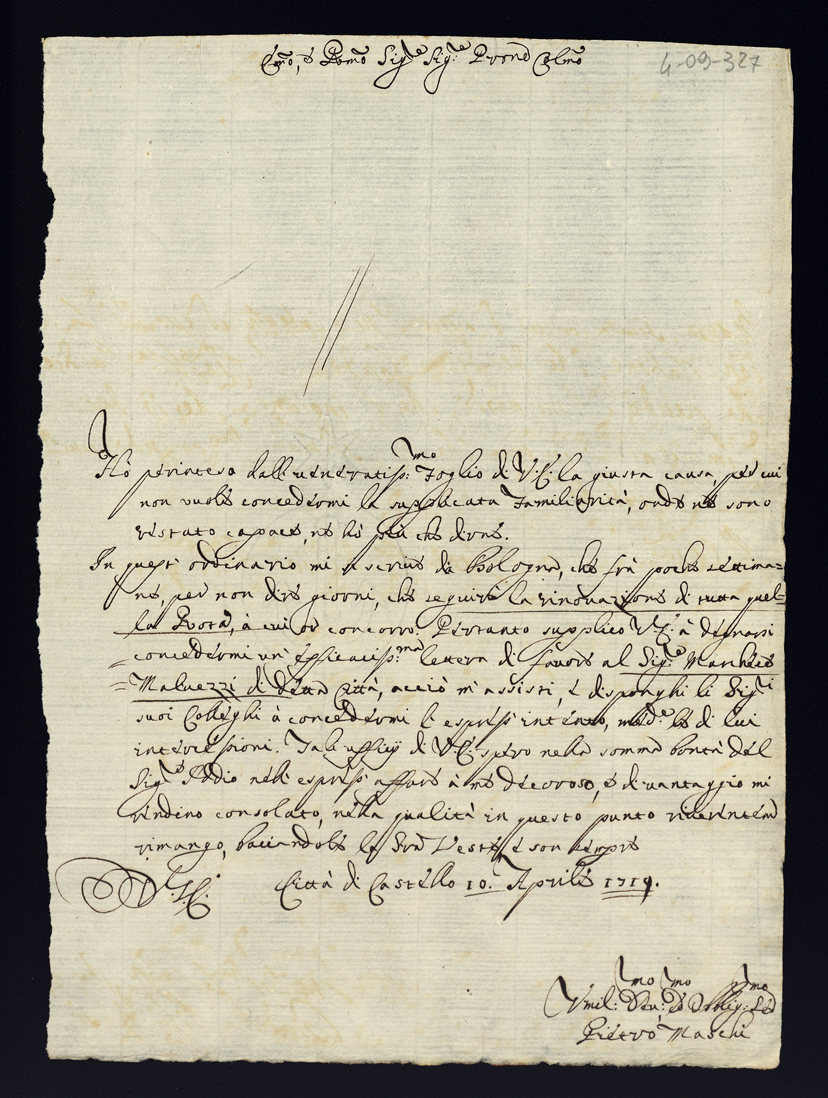 Em̃o, e Rm̃o Sig.re Sig.re Pron Colm̃o
4-09-327
Hò perinteso dall'veneratiss:mo Foglio di V.E. la giusta causa, per cui
non vuole concedermi la supplicata Familiarità, onde ne sono
restato capace, ne hò più che dirne.
In quest'ordinario mi si scrive da Bologna, che frà poche settima=
ne, per non dire giorni, che seguirà la rinovazione di tutta quel=
la Rota, à cui io concorro. Pertanto supplico V.E. à degnarsi
concedermi un'efficaciss:ma lettera di favore al Sig.re Marchese
Malvezzi di detta Città, acciò m'assisti, e disponghi li Sig.ri
suoi Colleghi à concedermi l'espresso intento, med.e le di lui
intercessioni. Tali ufficij di V.E. spero nella somma bontà del
Sig.re Iddio nell'espresso affare à me decoroso, e di vantaggio mi
rendino consolato, nella qualità in questo punto riverintem
rimango, baciandole la Sra Veste, e son sempre
D.V.E. Città di Castello 10. Aprile 1719.
Vmil:mo Dev:mo ed Obblig:mo Sre
Pietro Maschi